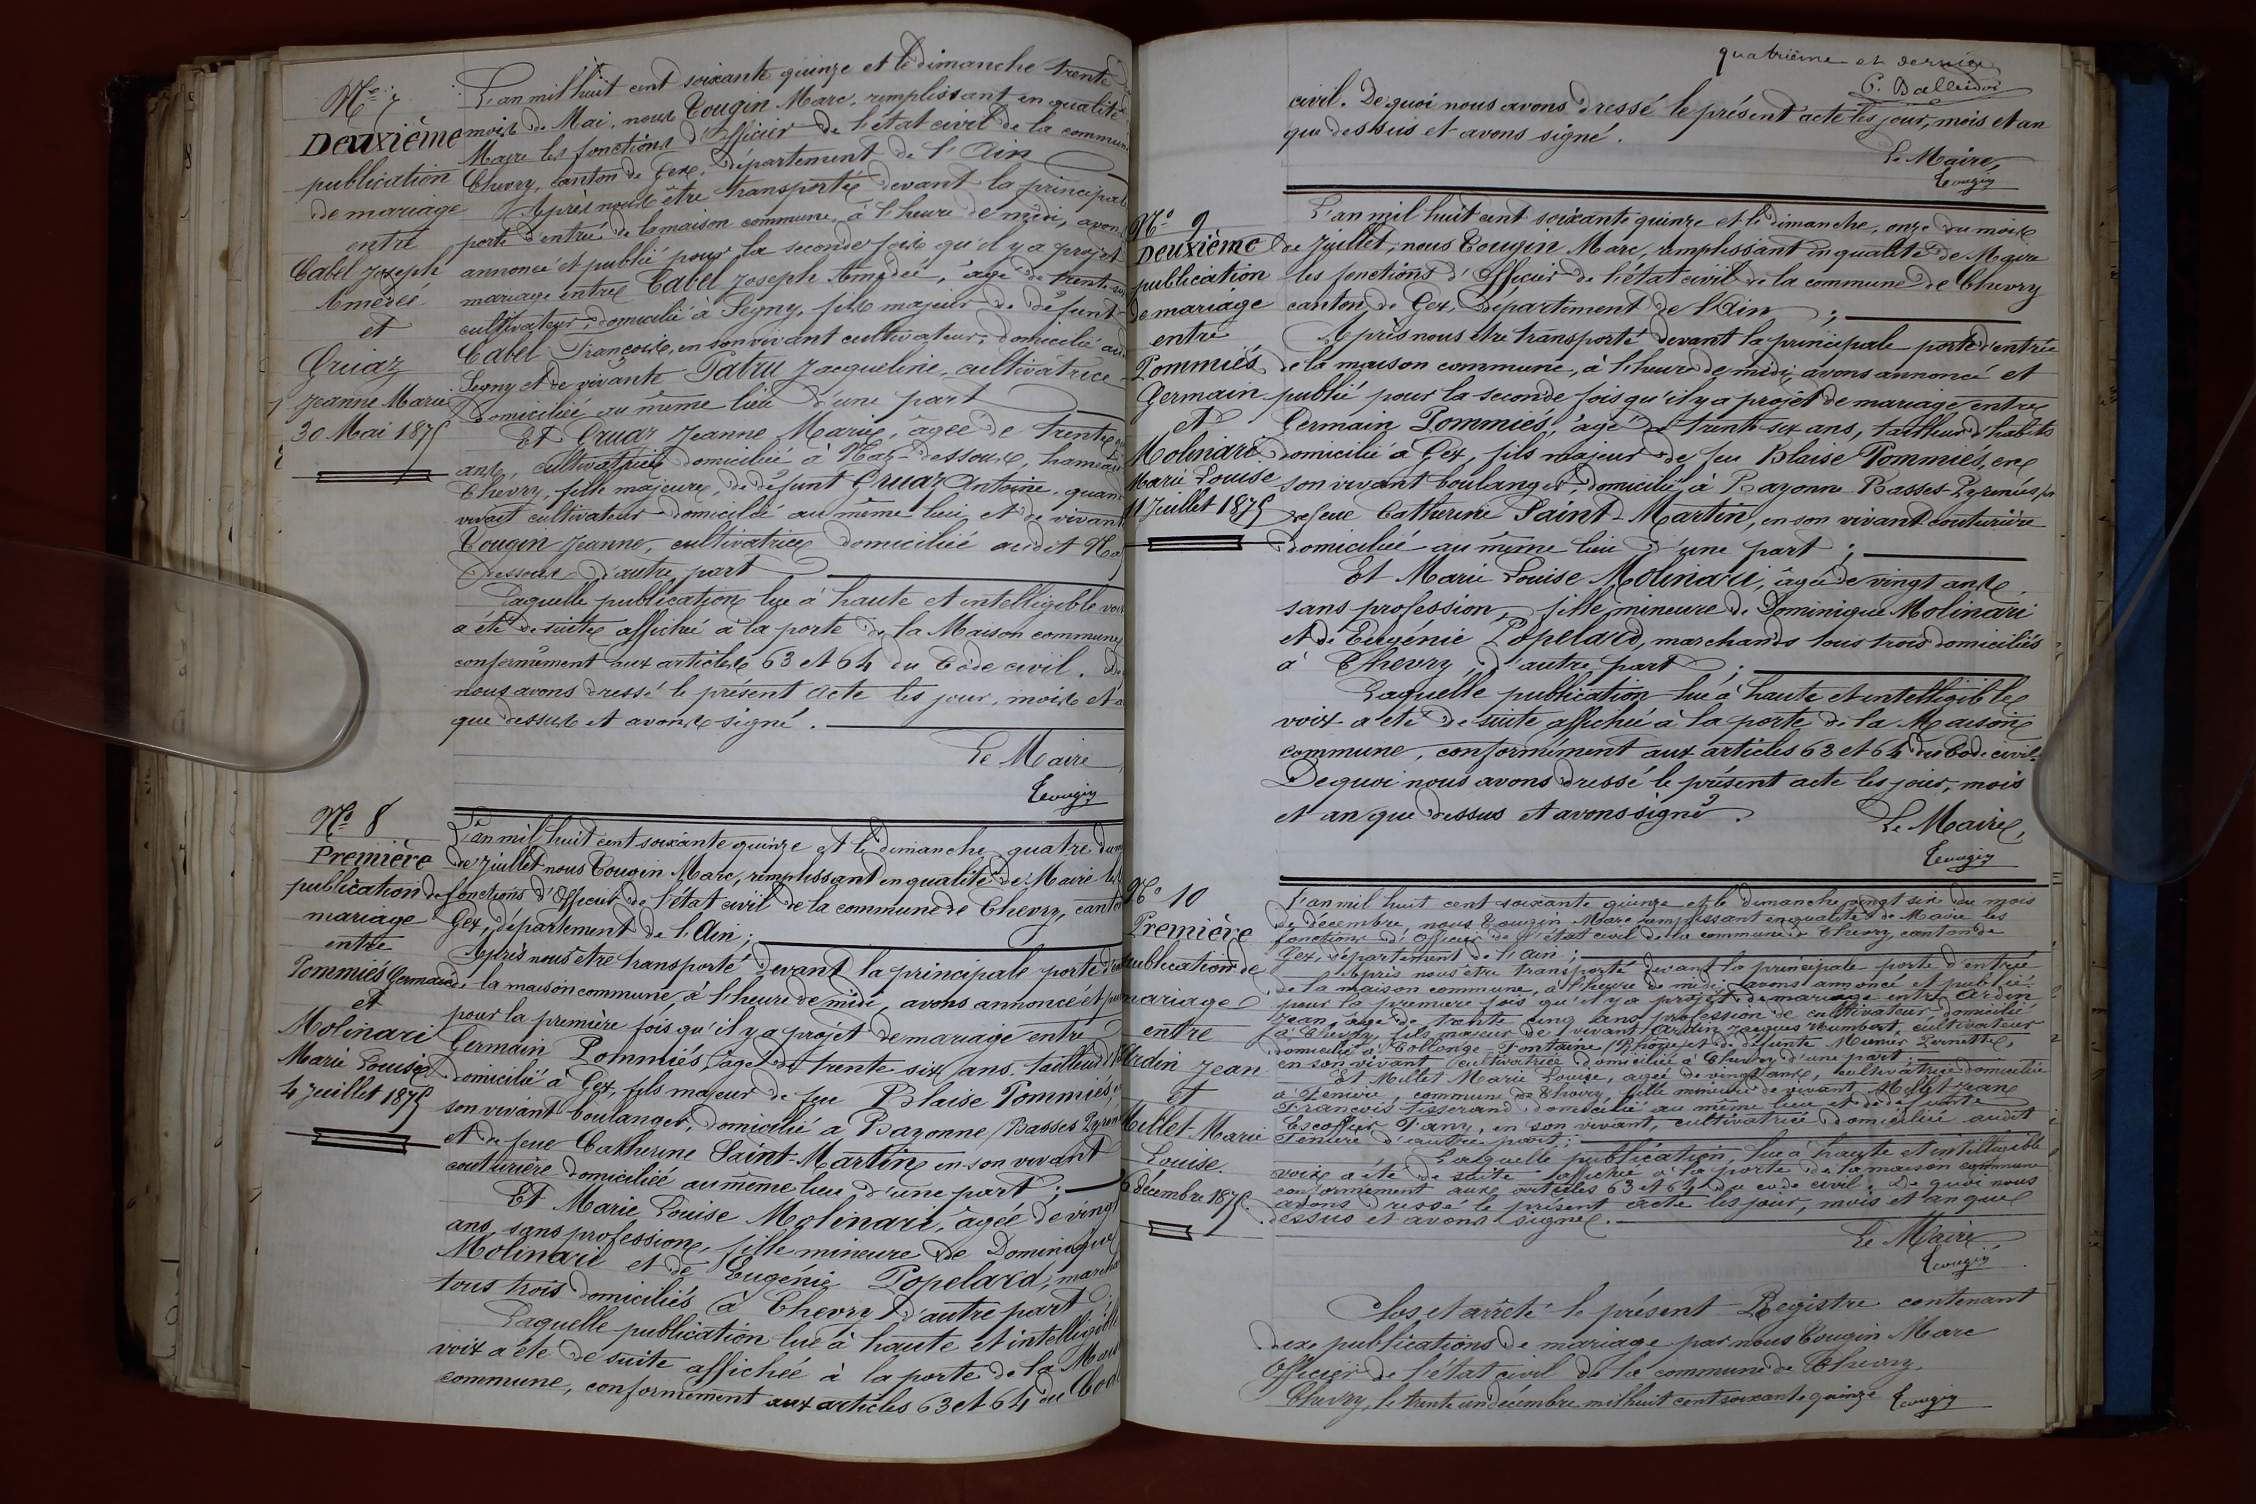 Nº 7
Deuxième
publication
de mariage
entre
Cabel Joseph
Amédée
et
Gruaz
Jeanne Marie
30 Mai 1875
L'an mil huit cent soixante quinze et le dimanche trente
mois de Mai, nous Tougin Marc, remplissant en qualité
Maire les fonctions d'Officier de l'état civil de la commune
Chevry, canton de Gex, département de l'Ain
Après nous être transporté devant la principale
porte d'entrée de la maison commune, à l'heure de midi, avons
annoncé et publié pour la seconde fois qu'il y a projet
mariage entre Cabel Joseph Amédée, âgé de trente six
cultivateur, domicilié à Segny, fils majeur de défunt
Cabel François, en son vivant cultivateur, domicilié au
Segny et de vivante Patru Jacqueline, cultivatrice
domiciliée au même lieu d'une part
Et Gruaz Jeanne Marie, âgée de trente
ans, cultivatrice domiciliée à Naz-dessous, hameau
Chevry, fille majeure, de défunt Gruaz Antoine, quand
vivait cultivateur domicilié au même lieu et de vivante
Tougin Jeanne, cultivatrice domiciliée audit Naz
dessous d'autre part
Laquelle publication lue à haute et intelligible voix
a été de suite affichée à la porte de la Maison commune
conformément aux articles 63 et 64 du Code civil. De
nous avons dressé le présent acte les jour, mois et a
que dessus et avons signé.
Le Maire
Tougin
Nº 8
Première
publication de
mariage
entre
Pommiés Germain
et
Molinari
Marie Louise
4 Juillet 1875
L'an mil huit cent soixante quinze et le dimanche quatre du m
de Juillet nous Tougin Marc, remplissant en qualité de Maire les
fonctions d'Officier de l'état civil de la commune de Chevry, canton
Gex, département de l'Ain;
Après nous être transporté devant la principale porte d'en
de la maison commune, à l'heure de midi, avons annoncé et pu
pour la première fois qu'il y a projet de mariage entre
Germain Pommiés, âgé de trente six ans tailleur d'h
domicilié à Gex, fils majeur de feu Blaise Pommiés, e
son vivant boulanger, domicilié à Bayonne (Basses Pyren
et de feue Catherine Saint-Martin en son vivant
couturière domiciliée au même lieu d'une part;
Et Marie Louise Molinari, âgée de vingt
ans, sans profession, fille mineure de Dominique
Molinari et de Eugénie Popelard, marcha
tous trois domiciliés à Chevry d'autre part;
Laquelle publication lue à haute et intelligible
voix a été de suite affichée à la porte de la Mais
commune, conformément aux articles 63 et 64 du Code
quatrième et dernier
civil. De quoi nous avons dressé le présent acte les jour, mois et an
que dessus et avons signé.
Le Maire,
Tougin
Nº 9
Deuxième
publication
de mariage
entre
Pommiés
Germain
et
Molinari
Marie Louise
11 Juillet 1875
L'an mil huit cent soixante quinze et le dimanche, onze du mois
de Juillet, nous Tougin Marc, remplissant en qualité de Maire
les fonctions d'Officier de l'état civil de la commune de Chevry
canton de Gex, département de l'Ain;
Après nous être transporté devant la principale porte d'entrée
de la maison commune, à l'heure de midi, avons annoncé et
publié pour la seconde fois qu'il y a projet de mariage entre
Germain Pommiés, âgé de trente six ans, tailleur d'habits
domicilié à Gex, fils majeur de feu Blaise Pommiés, en
son vivant boulanger, domicilié à Bayonne Basses-Pyrénées,
de feue Catherine Saint-Martin, en son vivant couturière
domiciliée au même lieu d'une part;
Et Marie Louise Molinari, âgée de vingt ans
sans profession, fille mineure de Dominique Molinari
et de Eugénie Popelard, marchands tous trois domiciliés
à Chevry, d'autre part;
Laquelle publication lue à haute et intelligible
voix a été de suite affichée à la porte de la Maison
commune, conformément aux articles 63 et 64 du Code civil.
De quoi nous avons dressé le présent acte les jour, mois
et an que dessus et avons signé.
Le Maire,
Tougin
Nº 10
Première
publication de
mariage
entre
Ardin Jean
et
Millet Marie
Louise.
6 décembre 1875.
L'an mil huit cent soixante quinze et le dimanche vingt six du mois
de décembre, nous Tougin Marc, remplissant en qualité de Maire les
fonctions d'Officier de l'état civil de la commune de Chevry, canton de
Gex, département de l'Ain;
Après nous être transporté devant la principale porte d'entrée
de la maison commune, à l'heure de midi, avons annoncé et publié
pour la première fois qu'il y a projet de mariage entre Ardin
Jean, âgé de trente cinq ans profession de cultivateur, domicilié
à Chevry, fils majeur de vivant Ardin Jacques Humbert, cultivateur
domicilié à Collonge-Fontaine (Rhône) et de défunte Munier Pernette,
en son vivant cultivatrice domiciliée à Chevry d'une part;
Et Millet Marie Louise, âgée de vingt ans, cultivatrice domiciliée
à Tenière, commune de Chevry, fille mineure de vivant Millet Jean
François tisserand domicilié au même lieu et de défunte
Escoffier Fany, en son vivant, cultivatrice domiciliée audit
Tenière d'autre part;
Laquelle publication, lue à haute et intelligible
voix a été de suite affichée à la porte de la maison commune
conformément aux articles 63 et 64 du code civil. De quoi nous
avons dressé le présent acte les jour, mois et an que
dessus et avons signé.
Le Maire
Tougin
Clos et arrêté le présent Registre contenant
dix publications de mariage par nous Tougin Marc
Officier de l'état civil de la commune de Chevry.
Chevry, le trente un décembre mil huit cent soixante quinze Tougin